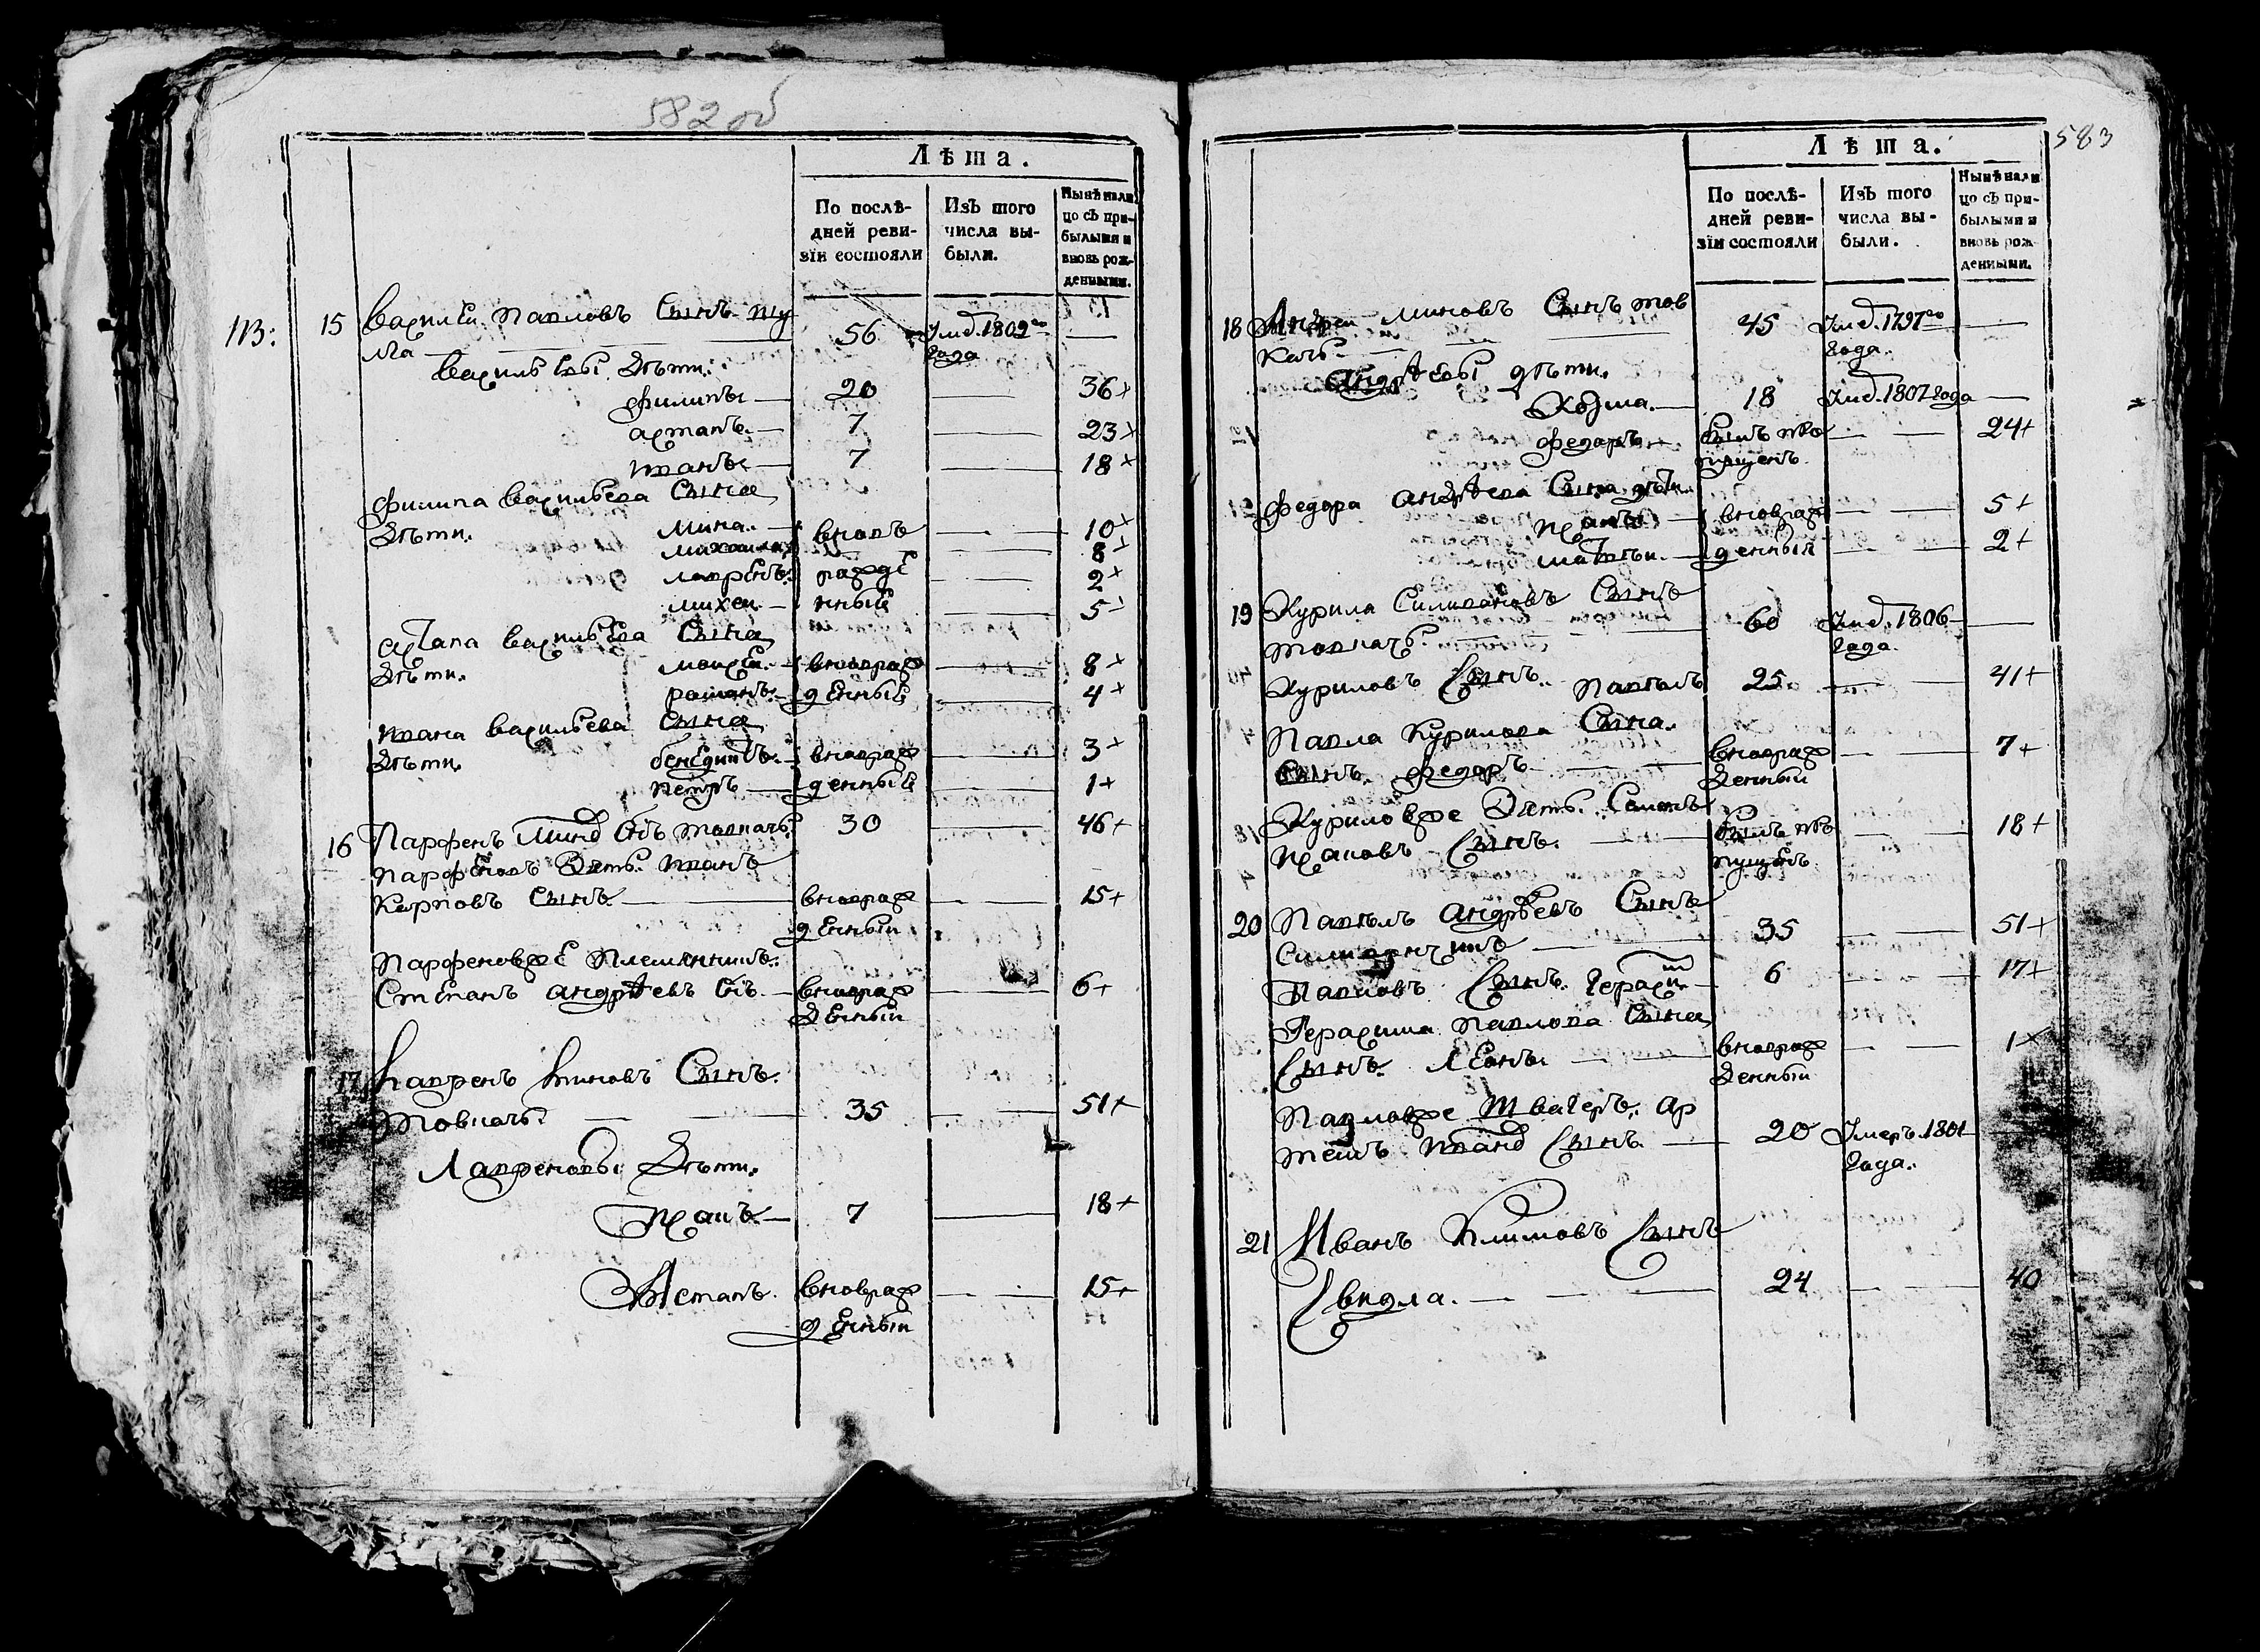 582 об
Лѣта.
По послѣ-
дней реви-
зіи состояли
Изъ того
числа вы-
были.
Нынѣ нали
цо съ при-
былыми и
вновь рож-
денными.
113:
15 Василеи Павловъ Сынъ шу
ла — 56 Умд. 1809го года —
Васильевы Дѣти:
филипъ — 20 — 36+
астапъ — 7 — 23+
иванъ — 7 — 18+
филипа Васильева Сына
Дѣти. Мина. — вновь — 10+
михаила — 8+
лаврѣнъ рожде — 2+
михеи — нныѣ — 5+
астапа Васильева Сына
Дѣти. моисеи. — вноврож — 8+
романъ — денныѣ — 4+
ивана Васильева Сына
Дѣти. бенедиктъ. — вноврож — 3+
петръ — денныѣ — 1+
16 Парфенъ Минов Снъ товкачъ. 30 — 46+
парфеновъ Зять. иванъ
Карповъ Сынъ — вноврож — 15+
денныи
Парфеновже Племянникъ.
Степанъ андрѣевъ Снъ — вноврож — 6+
Денныи
17 Лавренъ Миновъ Сынъ.
Товкачъ — 35 — 51+
Лавреновы Дѣти.
Исакъ — 7 — 18+
Астапъ. вноврож — 15+
денныи
583
Лѣта.
По послѣ-
дней реви-
зіи состояли
Изъ того
числа вы-
были.
Нынѣ нали
цо съ при-
былыми и
вновь рож-
денными.
18 Андреи миновъ Сынъ тов
качъ — 45 Умд. 1797го года. —
андрѣевы дѣти.
Козма. — 18 Умд. 1807 года —
федоръ — былъ про — 24+
пущенъ
федора андрѣева Сына дѣти.
— вноврож — 5+
матвѣи. — денныя — 2+
19 Курила Силивановъ Сынъ
товкачъ. — 60 Умд. 1806 года. —
Куриловъ Сынъ. павѣлъ 25 — 41+
Павла Курилова Сына.
Сынъ. федоръ — вноврож — 7+
Денныи
Куриловже Зять. Семенъ
Исаковъ Сынъ. — былъ про — 18+
пущенъ
20 Павѣлъ андрѣевъ Сынъ
— 35 — 51+
Павловъ Сынъ. Герасим — 6 — 17+
Герасима павлова Сына
Сынъ. Леонъ. — вноврож — 1+
Денныи
Павловже Швагеръ. ар
темъ иванов Сынъ. — 20 Умеръ. 1801 года.
21 Иванъ Климовъ Сынъ
Свидла. — 24 — 40